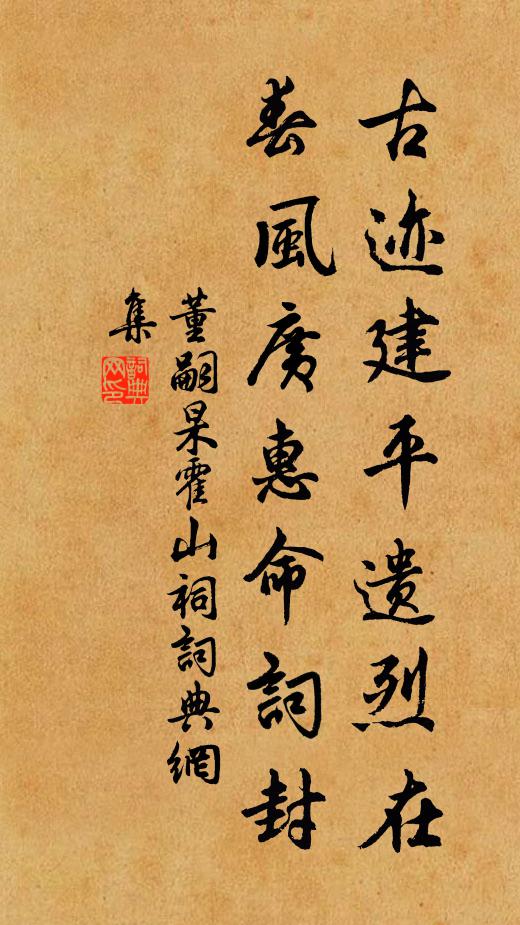 古迹建平遗烈在
春風廣惠命詞封
董嗣杲霍山祠詞典網
集
詞典
网印